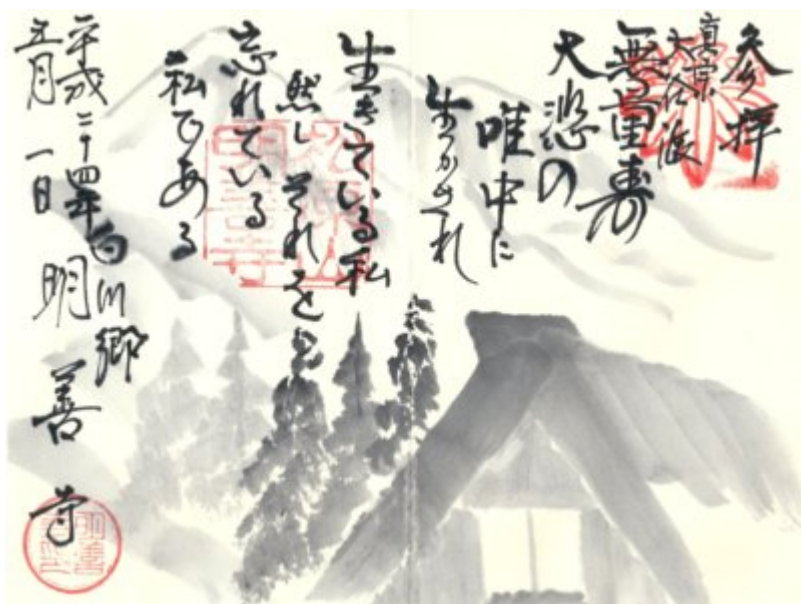 参拝
真宗
大谷派
無量寿
大悲の
唯中に
生かされ
生きている私
然しそれを
忘れている
私である
平成二十四年
五月一日
白川郷
明善寺